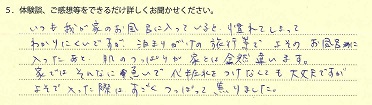 5. 体験談、ご感想等をできるだけ詳しくお聞かせください。
いつも我が家のお風呂に入っていると、慣れてしまって
わかりにくいですが、泊まりがけの旅行等でよそのお風呂に
入ったあと、肌のつっぱりが家とは全然違います。
家ではそんなに急いで化粧水をつけなくても大丈夫ですが
よそで入った際はすごくつっぱって焦りました。